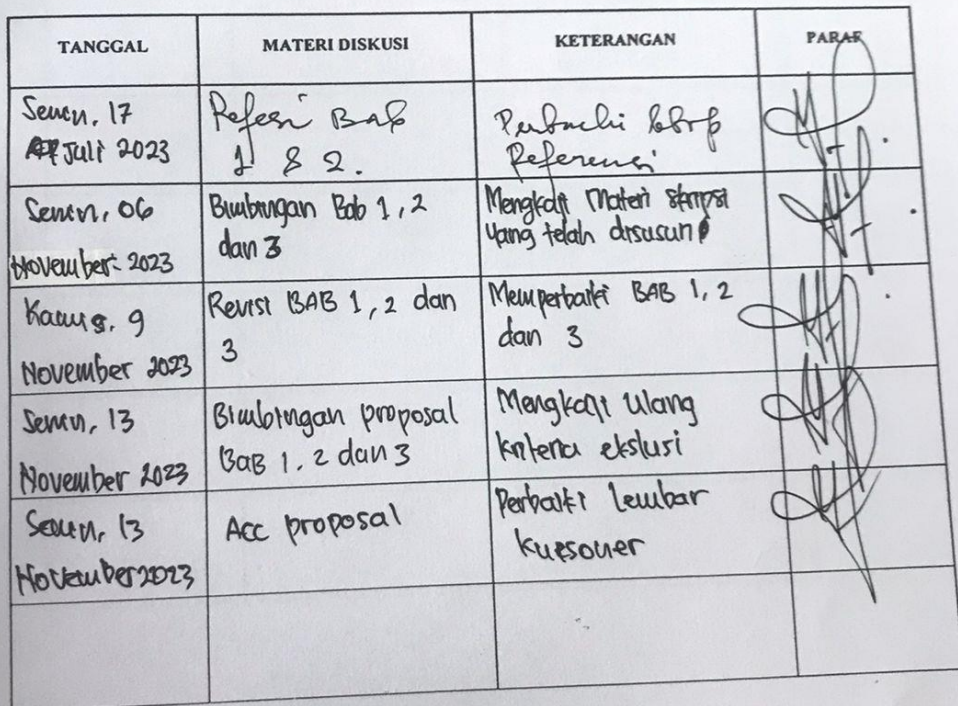 TANGGAL MATERI DISKUSI KETERANGAN PARAF
Senin, 17
Juli 2023
Refesi BAB
1 & 2.
Perbaiki
Referensi
Senin, 06
November 2023
Bimbingan Bab 1, 2
dan 3
Mengkaji Materi skripsi
yang telah disusun
Kamis, 9
November 2023
Revisi BAB 1, 2 dan
3
Memperbaiki BAB 1, 2
dan 3
Senin, 13
November 2023
Bimbingan proposal
BaB 1, 2 dan 3
Mengkaji Ulang
kriteria ekslusi
Senin, 13
November 2023
Acc proposal
Perbaiki Lembar
kuesoner